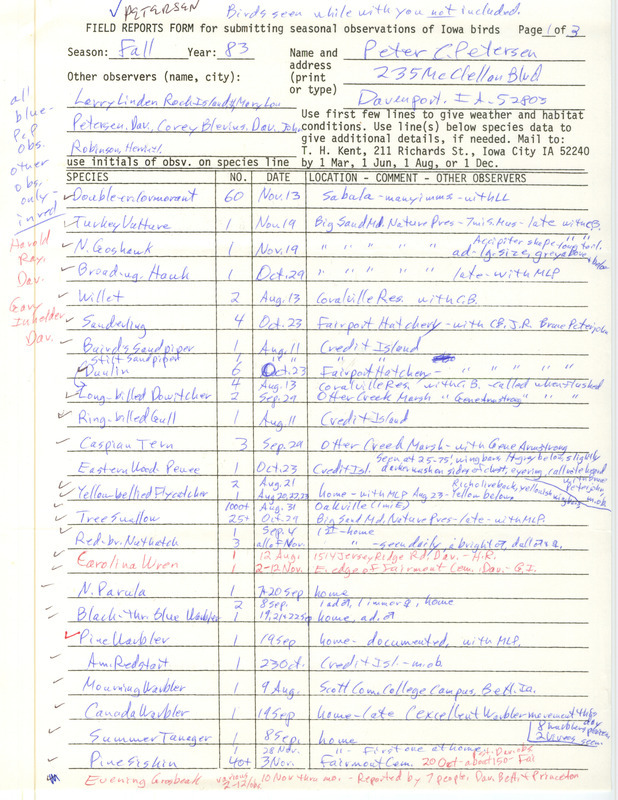 ✓ PETERSEN Birds seen while with you not included.
FIELD REPORTS FORM for submitting seasonal observations of Iowa birds Page 1 of 3
Season: Fall Year: 83 Name and address (print or type) Peter C. Petersen
235 McClellan Blvd
Davenport, IA. 52803
Other observers (name, city):
Larry Linden Rock Island, Mary Lou
Petersen, Dav. Corey Blevins, Dav. John
Robinson,
Use first few lines to give weather and habitat conditions. Use line(s) below species data to give additional details, if needed. Mail to: T. H. Kent, 211 Richards St., Iowa City IA 52240 by 1 Mar, 1 Jun, 1 Aug, or 1 Dec.
use initials of obsv. on species line
all blue- PCP obs. other obs. only- in red
Harold Ray, Dav.
Gary Inhelder Dav.
SPECIES NO. DATE LOCATION - COMMENT - OTHER OBSERVERS
✓ Double-cr. Cormorant 60 Nov.13 Sabula - many imms - with LL
✓ Turkey Vulture 1 Nov 19 Big Sand Md. Nature Pres - 7 mi S. Mus - late with C.B.
✓ N. Goshawk 1 Nov.19 " " " " Accipiter shape - long tail, ad - lg. size, grey above & below
✓ Broad-wg. Hawk 1 Oct.29 " " " " late - with MLP
✓ Willet 2 Aug.13 Coralville Res. with C.B.
✓ Sanderling 4 Oct.23 Fairport Hatchery - with CB, J.R. Bruce Peterjohn
Baird's Sandpiper 1 Aug.11 Credit Island
Stilt Sandpiper 1 " " " "
✓ Dunlin 6 Oct.23 Fairport Hatchery - " " " "
4 Aug.13 Coralville Res. with C.B. - called when flushed
✓ Long-billed Dowitcher 2 Sep.29 Otter Creek Marsh " Gene Armstrong " "
✓ Ring-billed Gull 1 Aug.11 Credit Island
✓ Caspian Tern 3 Sep.29 Otter Creek Marsh - with Gene Armstrong
Eastern Wood Pewee 1 Oct.23 Credit Isl. Seen at 25-75', wing bars, lt grey below, slightly darker wash on sides of chest, eyering, call note heard with Bruce Peterjohn m.ob
✓ Yellow-bellied Flycatcher 2 Aug.21
1 Aug 20,22,23 home - with MLP Aug 23 - Yellow below, Rich olive back, yellowish wing bars
✓ Tree Swallow 1000+ Aug.31 Oakville (1 mi E)
25+ Oct.29 Big Sand Md. Nature Pres - late - with MLP.
✓ Red-br. Nuthatch 1 Sep.4 1 ♀ - home
3 all of Nov. " - seen daily, 2 bright ♂, dull ♂ or ♀.
✓ Carolina Wren 1 12 Aug. 1514 Jersey Ridge Rd, Dav. - H.R.
1 2-12 Nov. E. edge of Fairmont Cem. Dav. - G.I.
✓ N. Parula 1 7&20 Sep home
2 8 Sep. 1 ad ♂, 1 imm ♀, home
✓ Black-thr. Blue Warbler 1 19,21&22 Sep home, ad. ♂
✓ Pine Warbler 1 19 Sep home - documented, with MLP.
✓ Am. Redstart 1 23 Oct. Credit Isl - m.ob
✓ Mourning Warbler 1 9 Aug. Scott Com. College Campus, Bett. Ia.
✓ Canada Warbler 1 19 Sep home - late (excellent Warbler movement this day
8 warblers present, 2 hours seen.
✓ Summer Tanager 1 8 Sep. home
1 28 Nov. " - First one at home
✓ Pine Siskin 40+ 3 Nov. Fairmont Cem. 20 Oct about 150 -
Evening Grosbeak various 2-12/obs 10 Nov thru mo. - Reported by 7 people, Dav. Bett. & Princeton